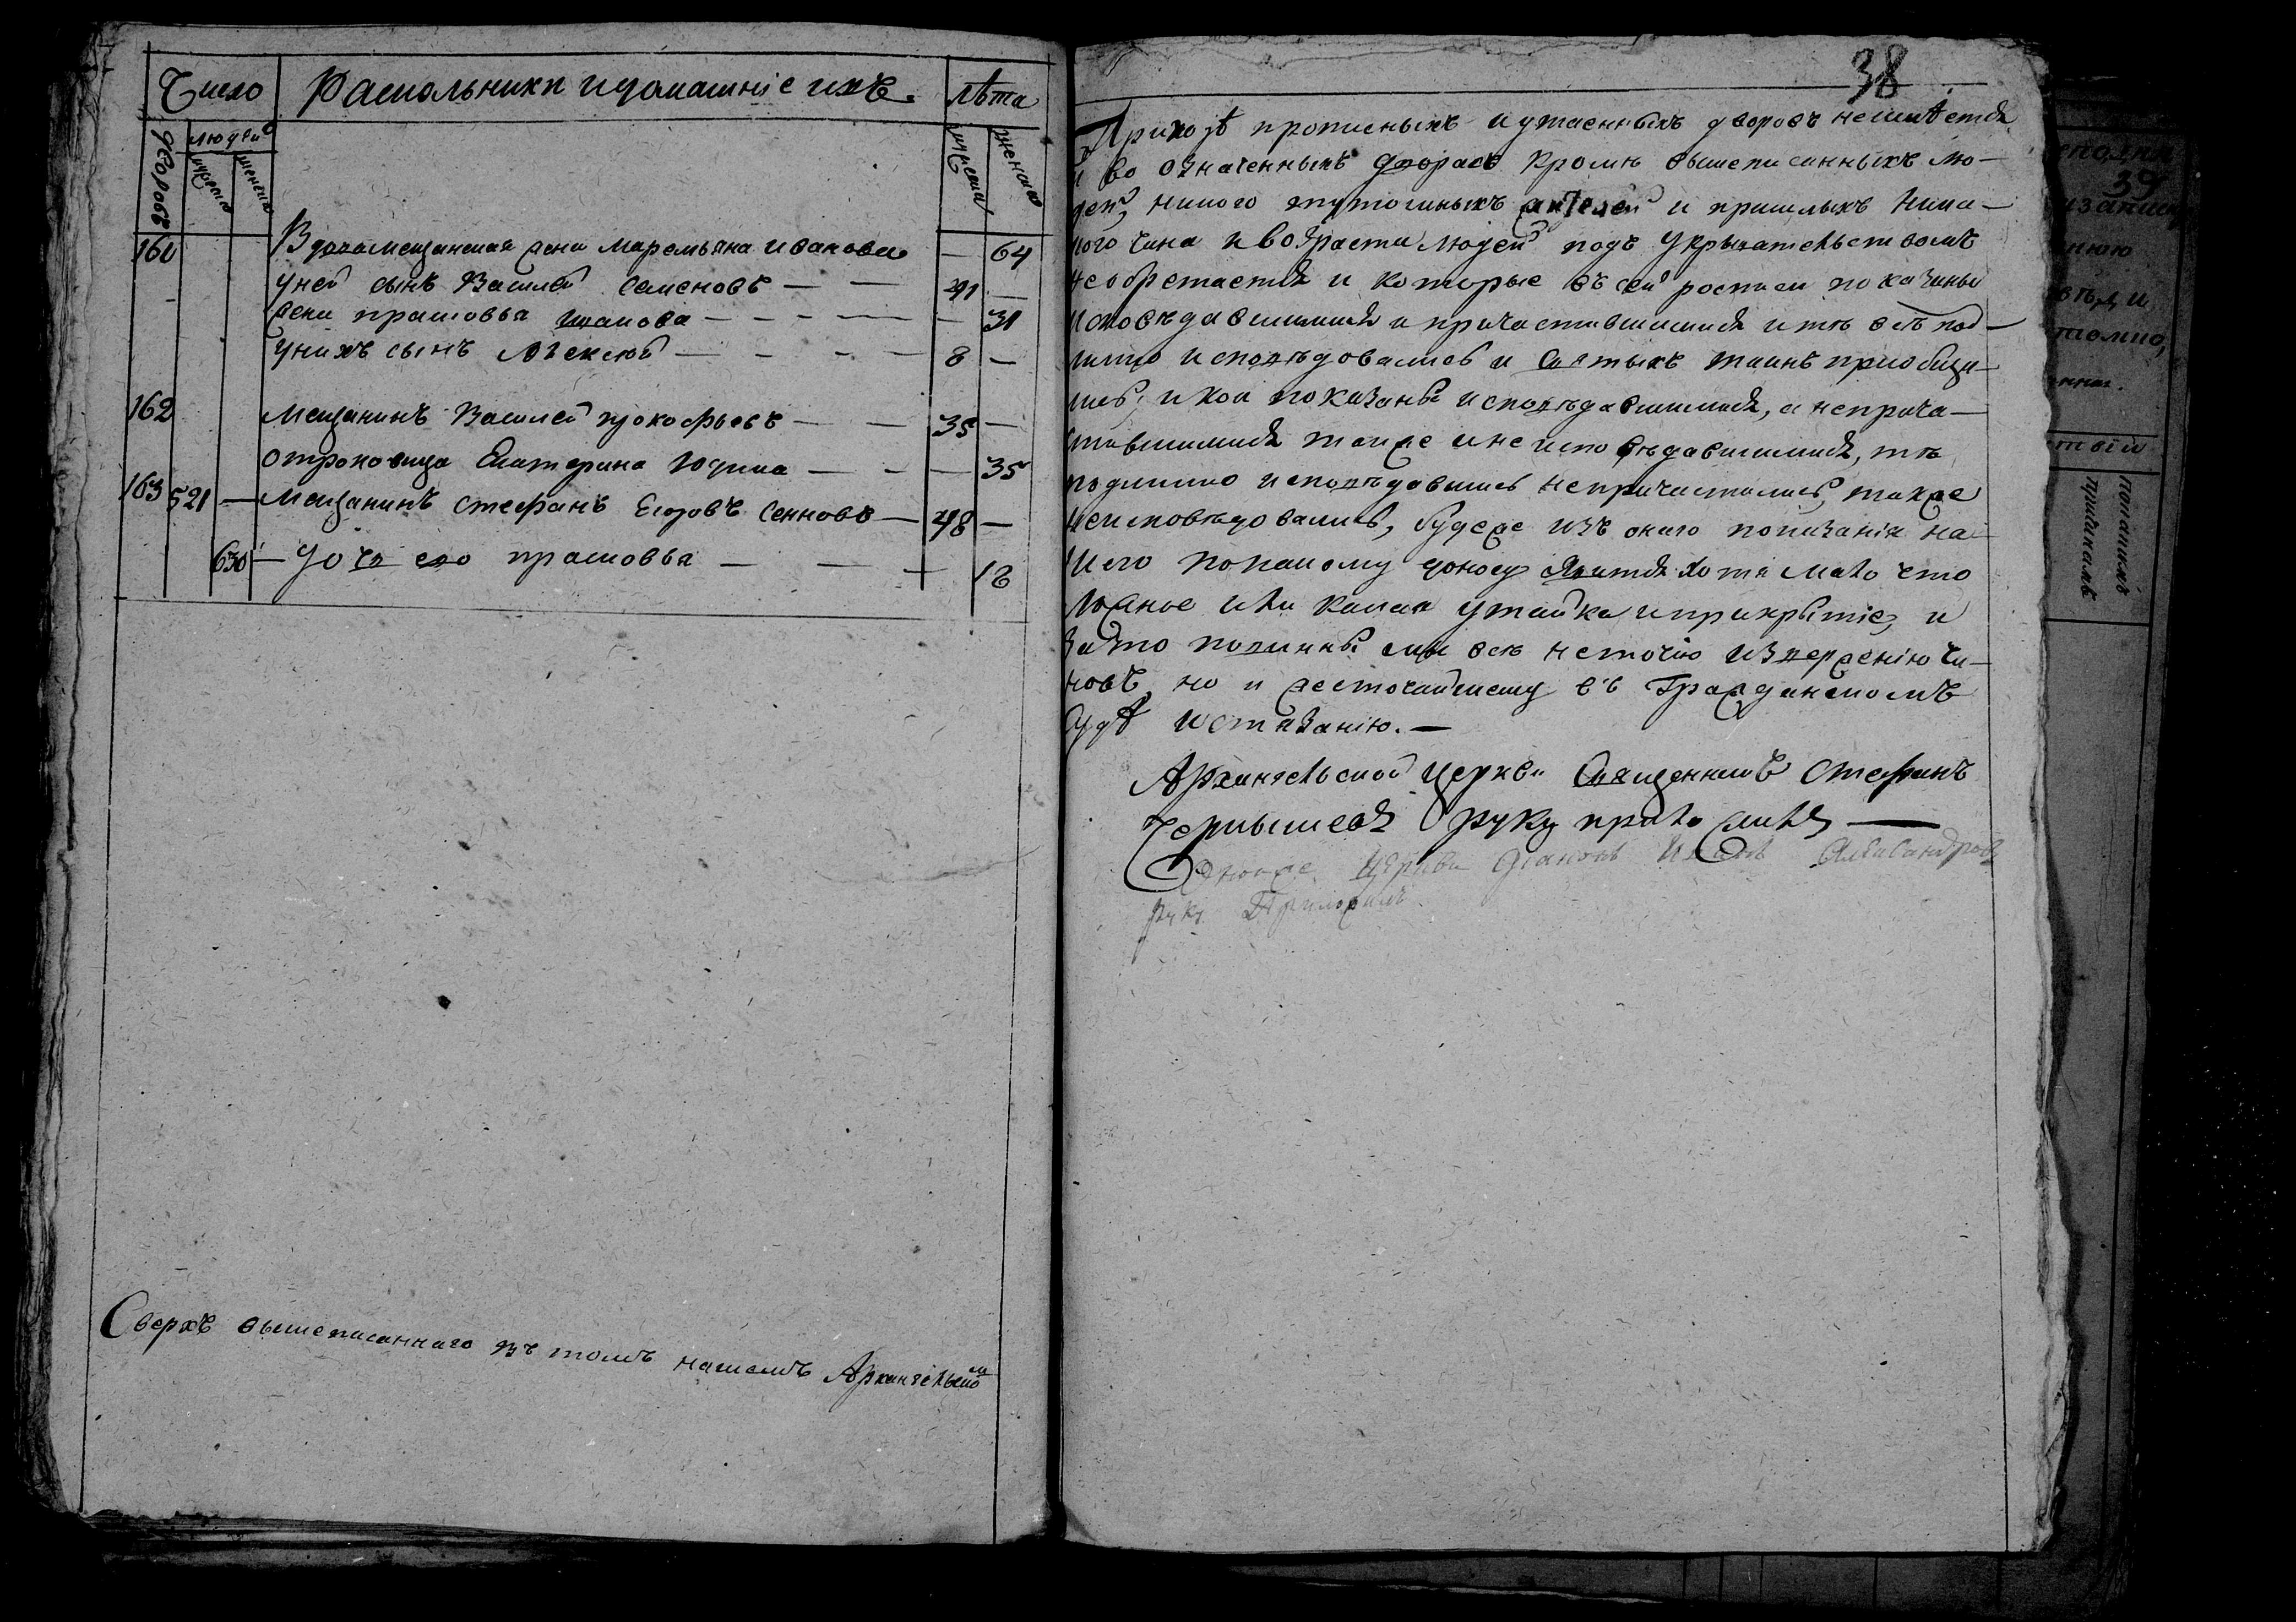 Число Раскольники и домашніе ихъ. лѣта
дворовъ людей мужеска женска мужеска женска
161 Вдова мещанская жена Маремьяна Иванова — 64
у ней сынъ Василей Семеновъ — — 41 —
жена Прасковья — — — — — 31
у нихъ сынъ Алексей — — — — 8 —
162 Мещанинъ Василей Прокофьевъ — — 35 —
отроковица Екатерина Юдина — — — 35
163 521 — Мещанинъ Стефанъ Егоровъ Сенновъ — 48 —
630 — дочь его Прасковья — — — 18
Сверхъ вышеписаннаго въ томъ нашемъ Архангельскомъ
38
Приходѣ прописныхъ и утаенныхъ дворовъ неимѣется
и во означенныхъ дворахъ кромѣ вышеписанныхъ лю—
дей, никого тутошныхъ жителей и пришлыхъ ника—
кого чина и возраста людей подъ укрывательствомъ
необретается и которые въ сей росписи показаны
исповѣдавшимися и причастившимися и тѣ всѣ под—
линно исповѣдовались и святыхъ таинъ приобща—
лись, и кои показаны исповѣдавшимися, а неприча—
стившимися также и не исповѣдавшимися, тѣ
подлинно исповѣдавшись непричастились, также
неисповѣдовались, будеже изъ онаго показанія на—
шего покакому доносу явится хотя мало что
ложное или какая утайка и прикрытіе, и
за то повинны мы всѣ неточію изверженію чи—
новъ, но и жесточайшему въ Гражданскомъ
Судѣ истязанію. —
Архангельской церкви Священникъ Стефанъ
Чернышевъ руку приложилъ —
Тоюже Церкви Діаконъ Александровъ
руку Приложилъ
39